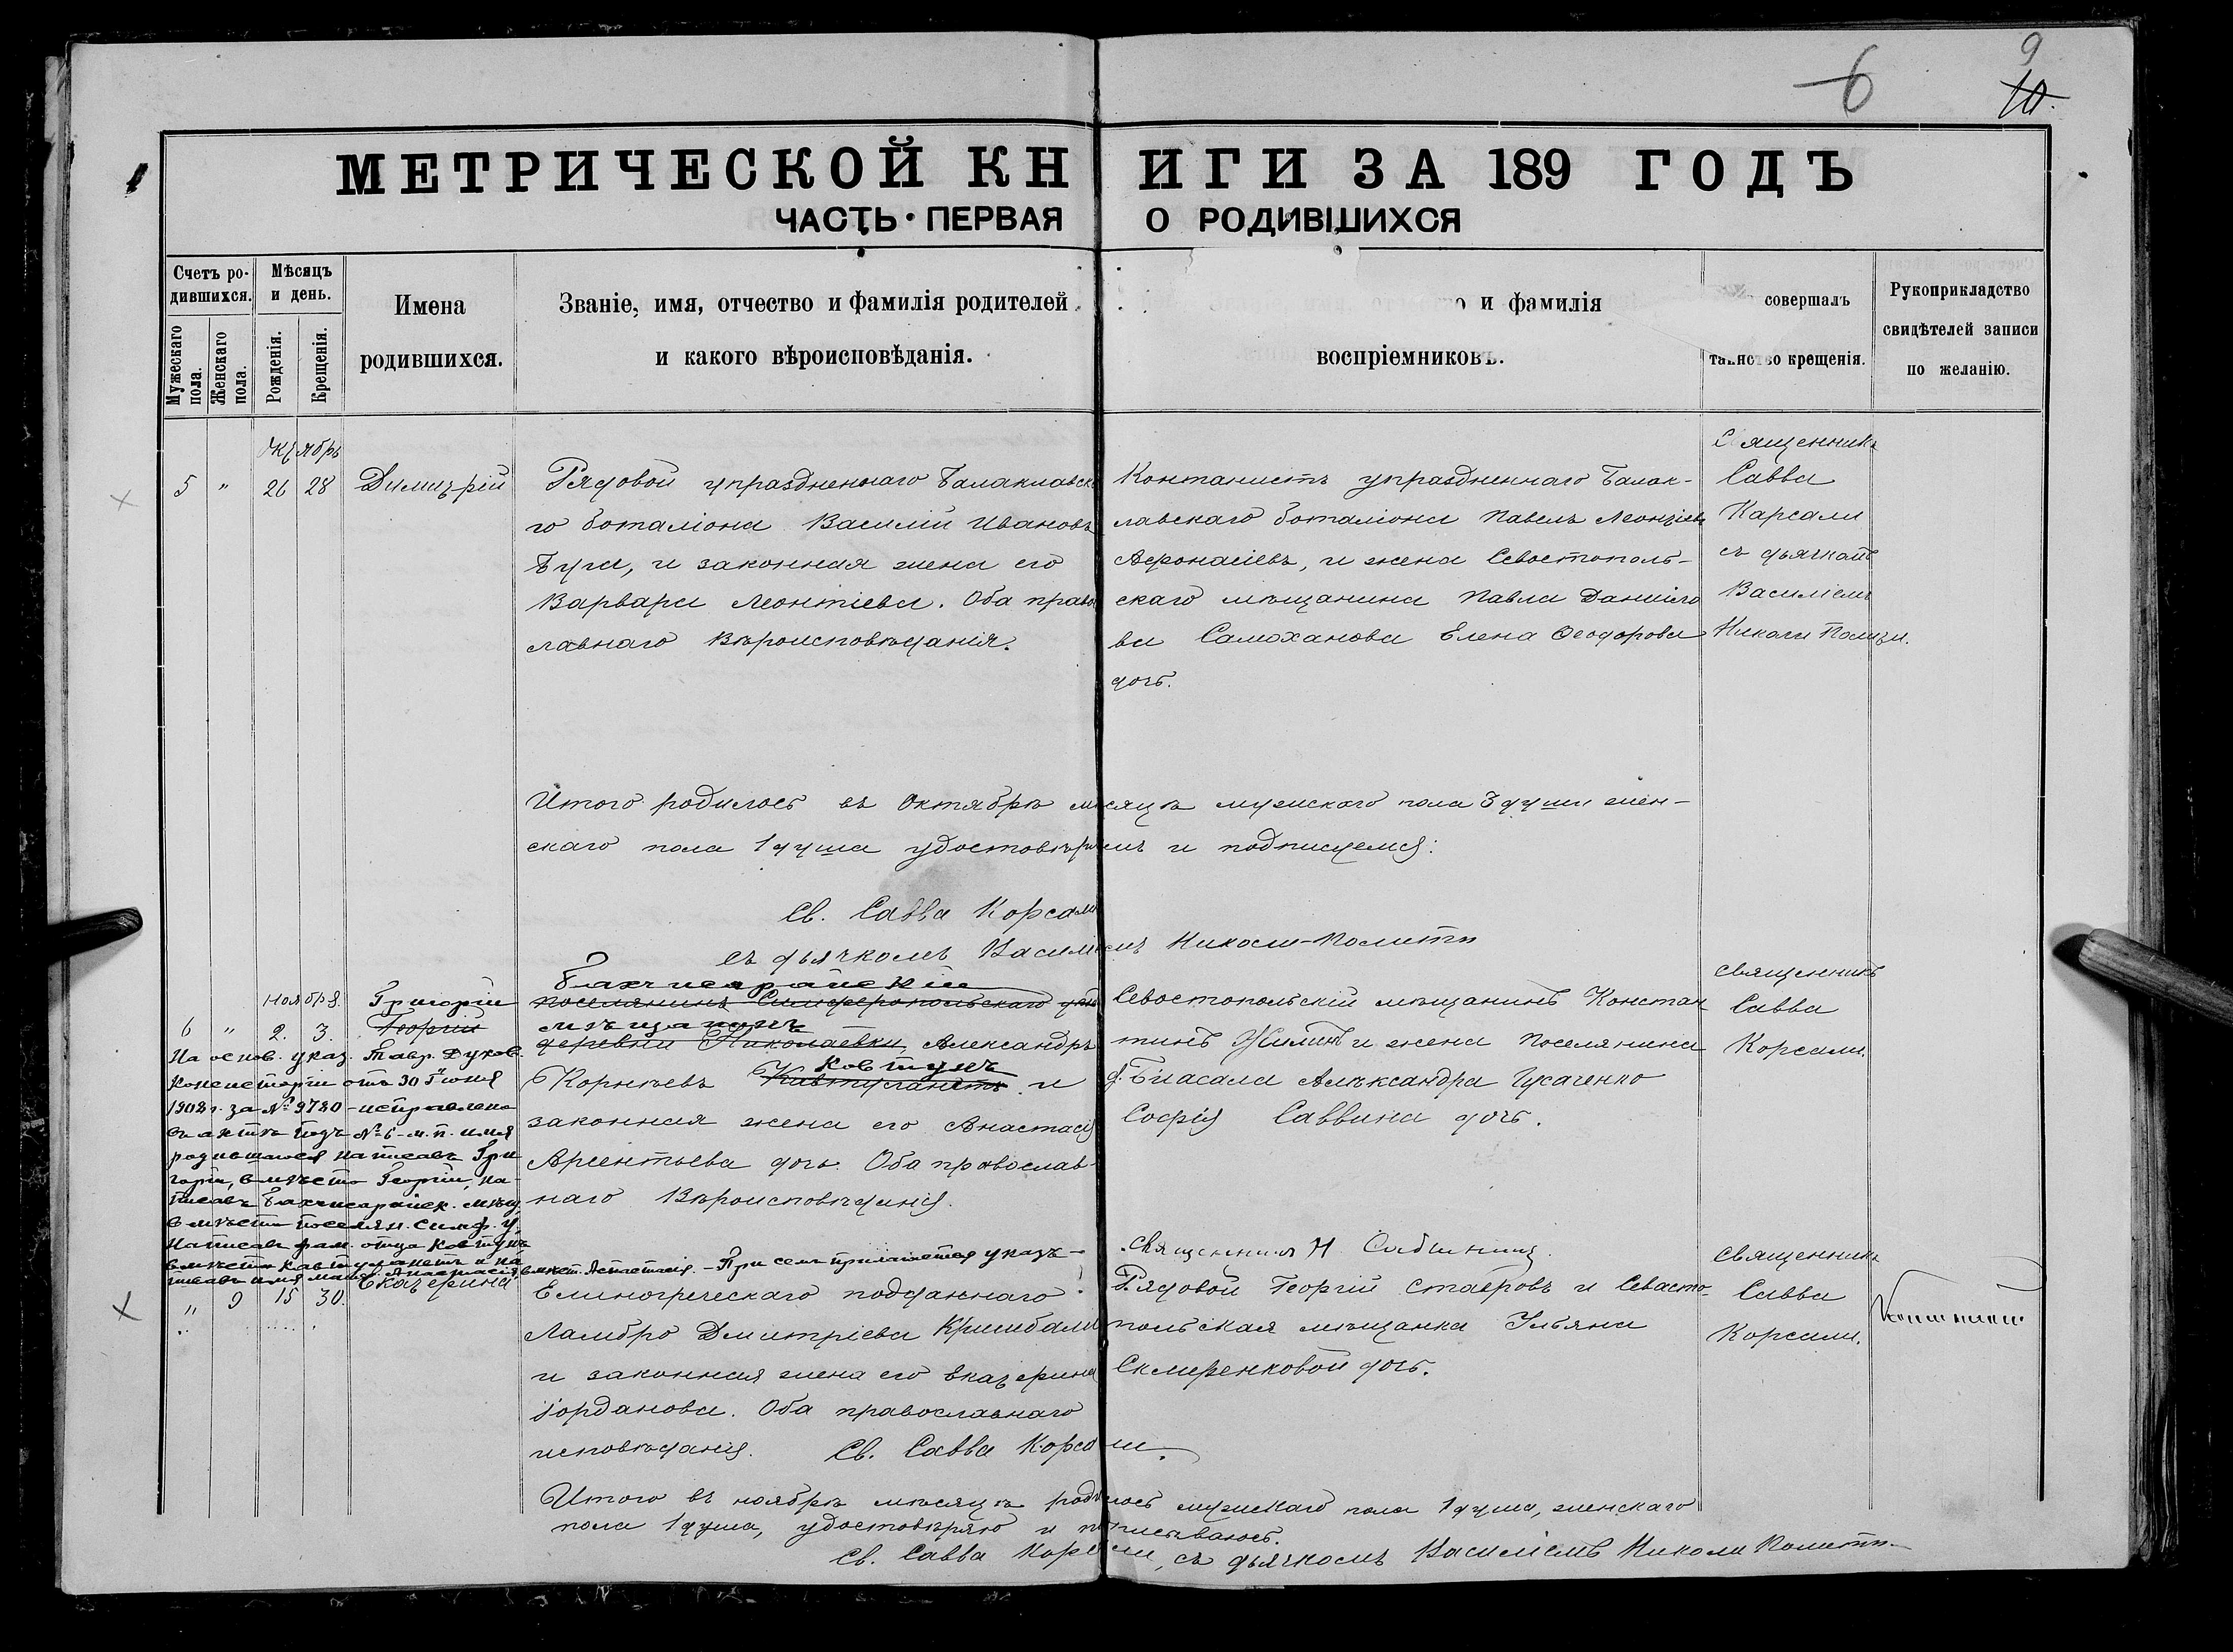 6
9
10.
МЕТРИЧЕСКОЙ КНИГИ ЗА 189 ГОДЪ
ЧАСТЬ ПЕРВАЯ О РОДИВШИХСЯ
Счетъ родившихся.
Мужескаго пола.
Женскаго пола.
Мѣсяцъ и день.
Рожденія.
Крещенія.
Имена родившихся.
Званіе, имя, отчество и фамилія родителей
и какого вѣроисповѣданія.
и фамилія
воспріемниковъ.
совершалъ
таинство крещенія.
Рукоприкладство
свидѣтелей записи
по желанію.
Октябрь
5 " 26 28 Димитрій
Рядовой упраздненнаго Балаклавска
го баталіона Василій Ивановъ
и законная жена его
Варвара Леонтіева. Оба право
лавнаго Вѣроисповѣданія.
упраздненнаго Балак-
лавскаго баталіона Павелъ Леонтіевъ
Афонасіевъ, и жена Севостополь-
скаго мѣщанина Павла Данило
ва Самоханова Елена Ѳеодорова
дочь.
Священникъ
Савва
Карсали
съ дьячкомъ
Василіемъ
Николи Полити.
Итого родилось въ Октябрѣ мѣсяцѣ мужскаго пола 3 души жен-
скаго пола 1 душа удостовѣряемъ и подписуемся:
Св. Савва Корсали
съ дьячкомъ Василіемъ Николи-Полити
Ноябрь.
6 " 2. 3.
Григорій
Георгій
Бахчисарайскій
поселянинъ Симферопольскаго уѣз
мѣщанинъ
деревни Николаевки, Александръ
Ковтунъ
Корнѣевъ и
законная жена его Анастасія
Арсентьева дочь. Оба православ-
наго Вѣроисповѣданія.
Севостопольскій мѣщанинъ Констан
тинъ и жена Поселянина
д. Біасала Алѣксандра Гусаченко
Софія Саввина дочь.
Священникъ
Савва
Корсали.
На основ. указ. Тавр. Духов.
Консисторіи отъ 30 Іюня
1908 г. за № 9780 - исправлено
въ актѣ подъ № 6 - м. п. имя
родившагося написавъ Гри
горій, вмѣсто Георгій, на-
писавъ Бахчисарайск. мѣщ.
вмѣсто поселян. Симф. у.
Написавъ фам. отца Ковтунъ
вмѣсто и на
писавъ имя матер. Анастасія,
вмѣст. - При семъ прилагается указъ -
Священникъ Н.
" 9 15 30. Екатерина
Елиногреческаго подданнаго
Ламбро Дмитріева
и законная жена его Екатерина
Іорданова. Оба православнаго
исповѣданія. Св. Савва Корсали.
Рядовой Георгій Ставровъ и Севасто-
польская мѣщанка Ульяна
дочь.
Священникъ
Савва
Корсали.
Итого въ ноябрѣ мѣсяцѣ родилось мужскаго пола 1 душа, женскаго
пола 1 душа, удостовѣряю и подписываюсь.
Св. Савва Корсали, съ дьячкомъ Василіемъ Николи Полити